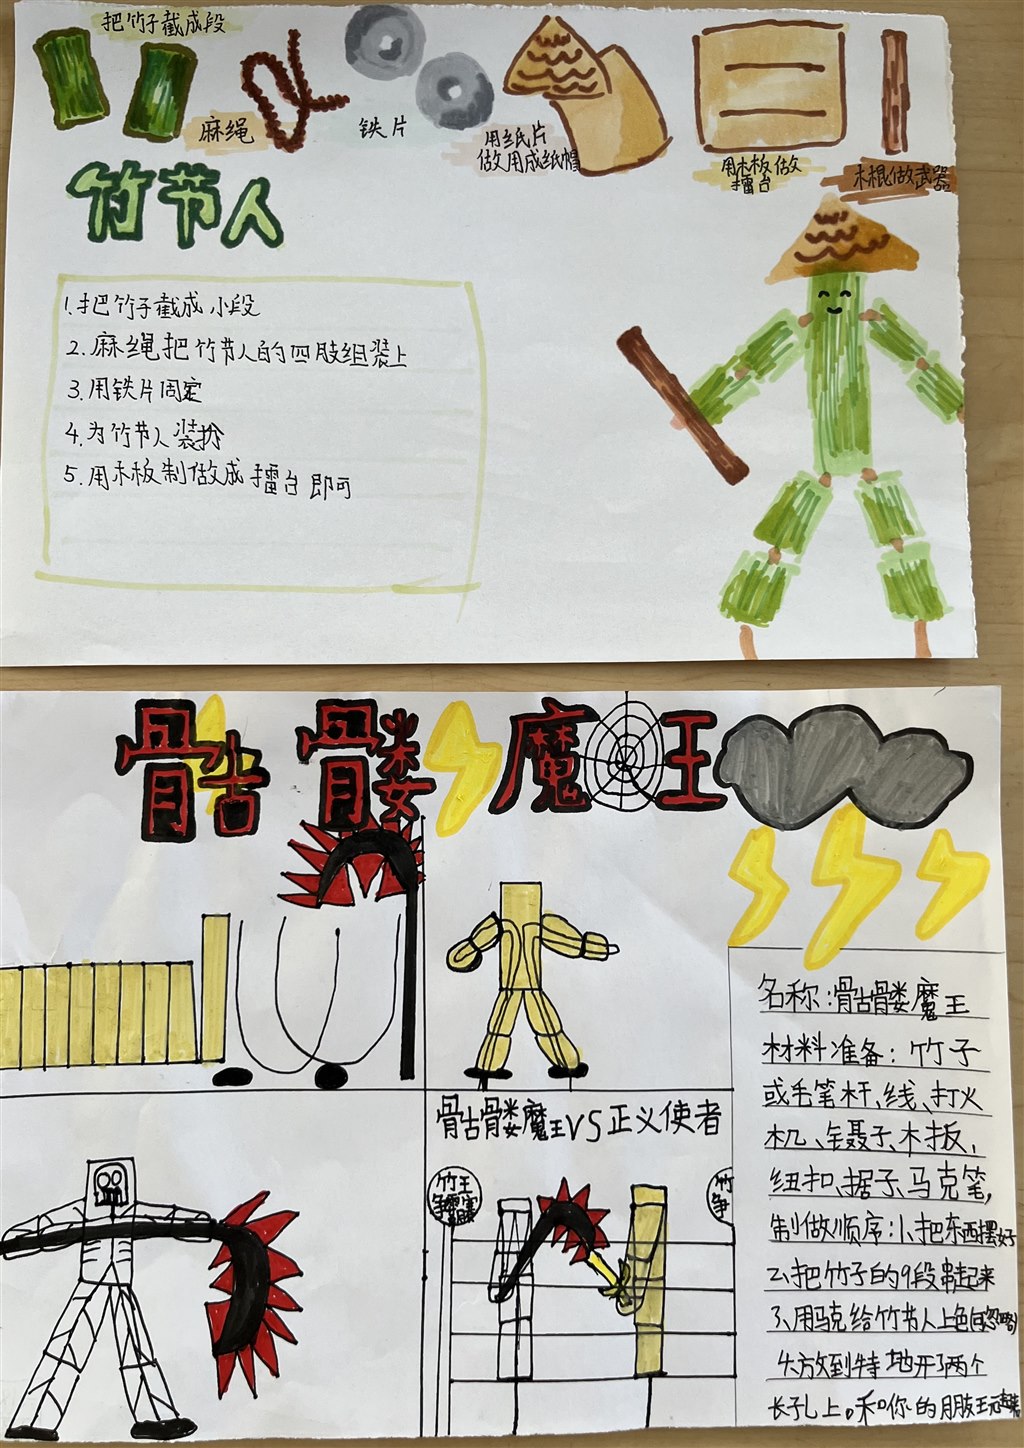 把竹子截成段
麻绳
铁片
用纸片
做用成纸帽
用木板做
擂台
木棍做武器
竹节人
1.把竹子截成小段
2.麻绳把竹节人的四肢组装上
3.用铁片固定
4.为竹节人装扮
5.用木板制做成擂台即可
骷髅魔王
骷髅魔王VS正义使者
竹王
争霸赛
竹
争
名称:骷髅魔王
材料准备:竹子
或毛笔杆、线、打火
机、镊子、木板,
纽扣、据子、马克笔,
制做顺序:1、把东西摆好
2、把竹子的9段串起来
3、用马克给竹节人上色(可忽略)
4.放到特地开了两个
长孔上。和你的朋友玩